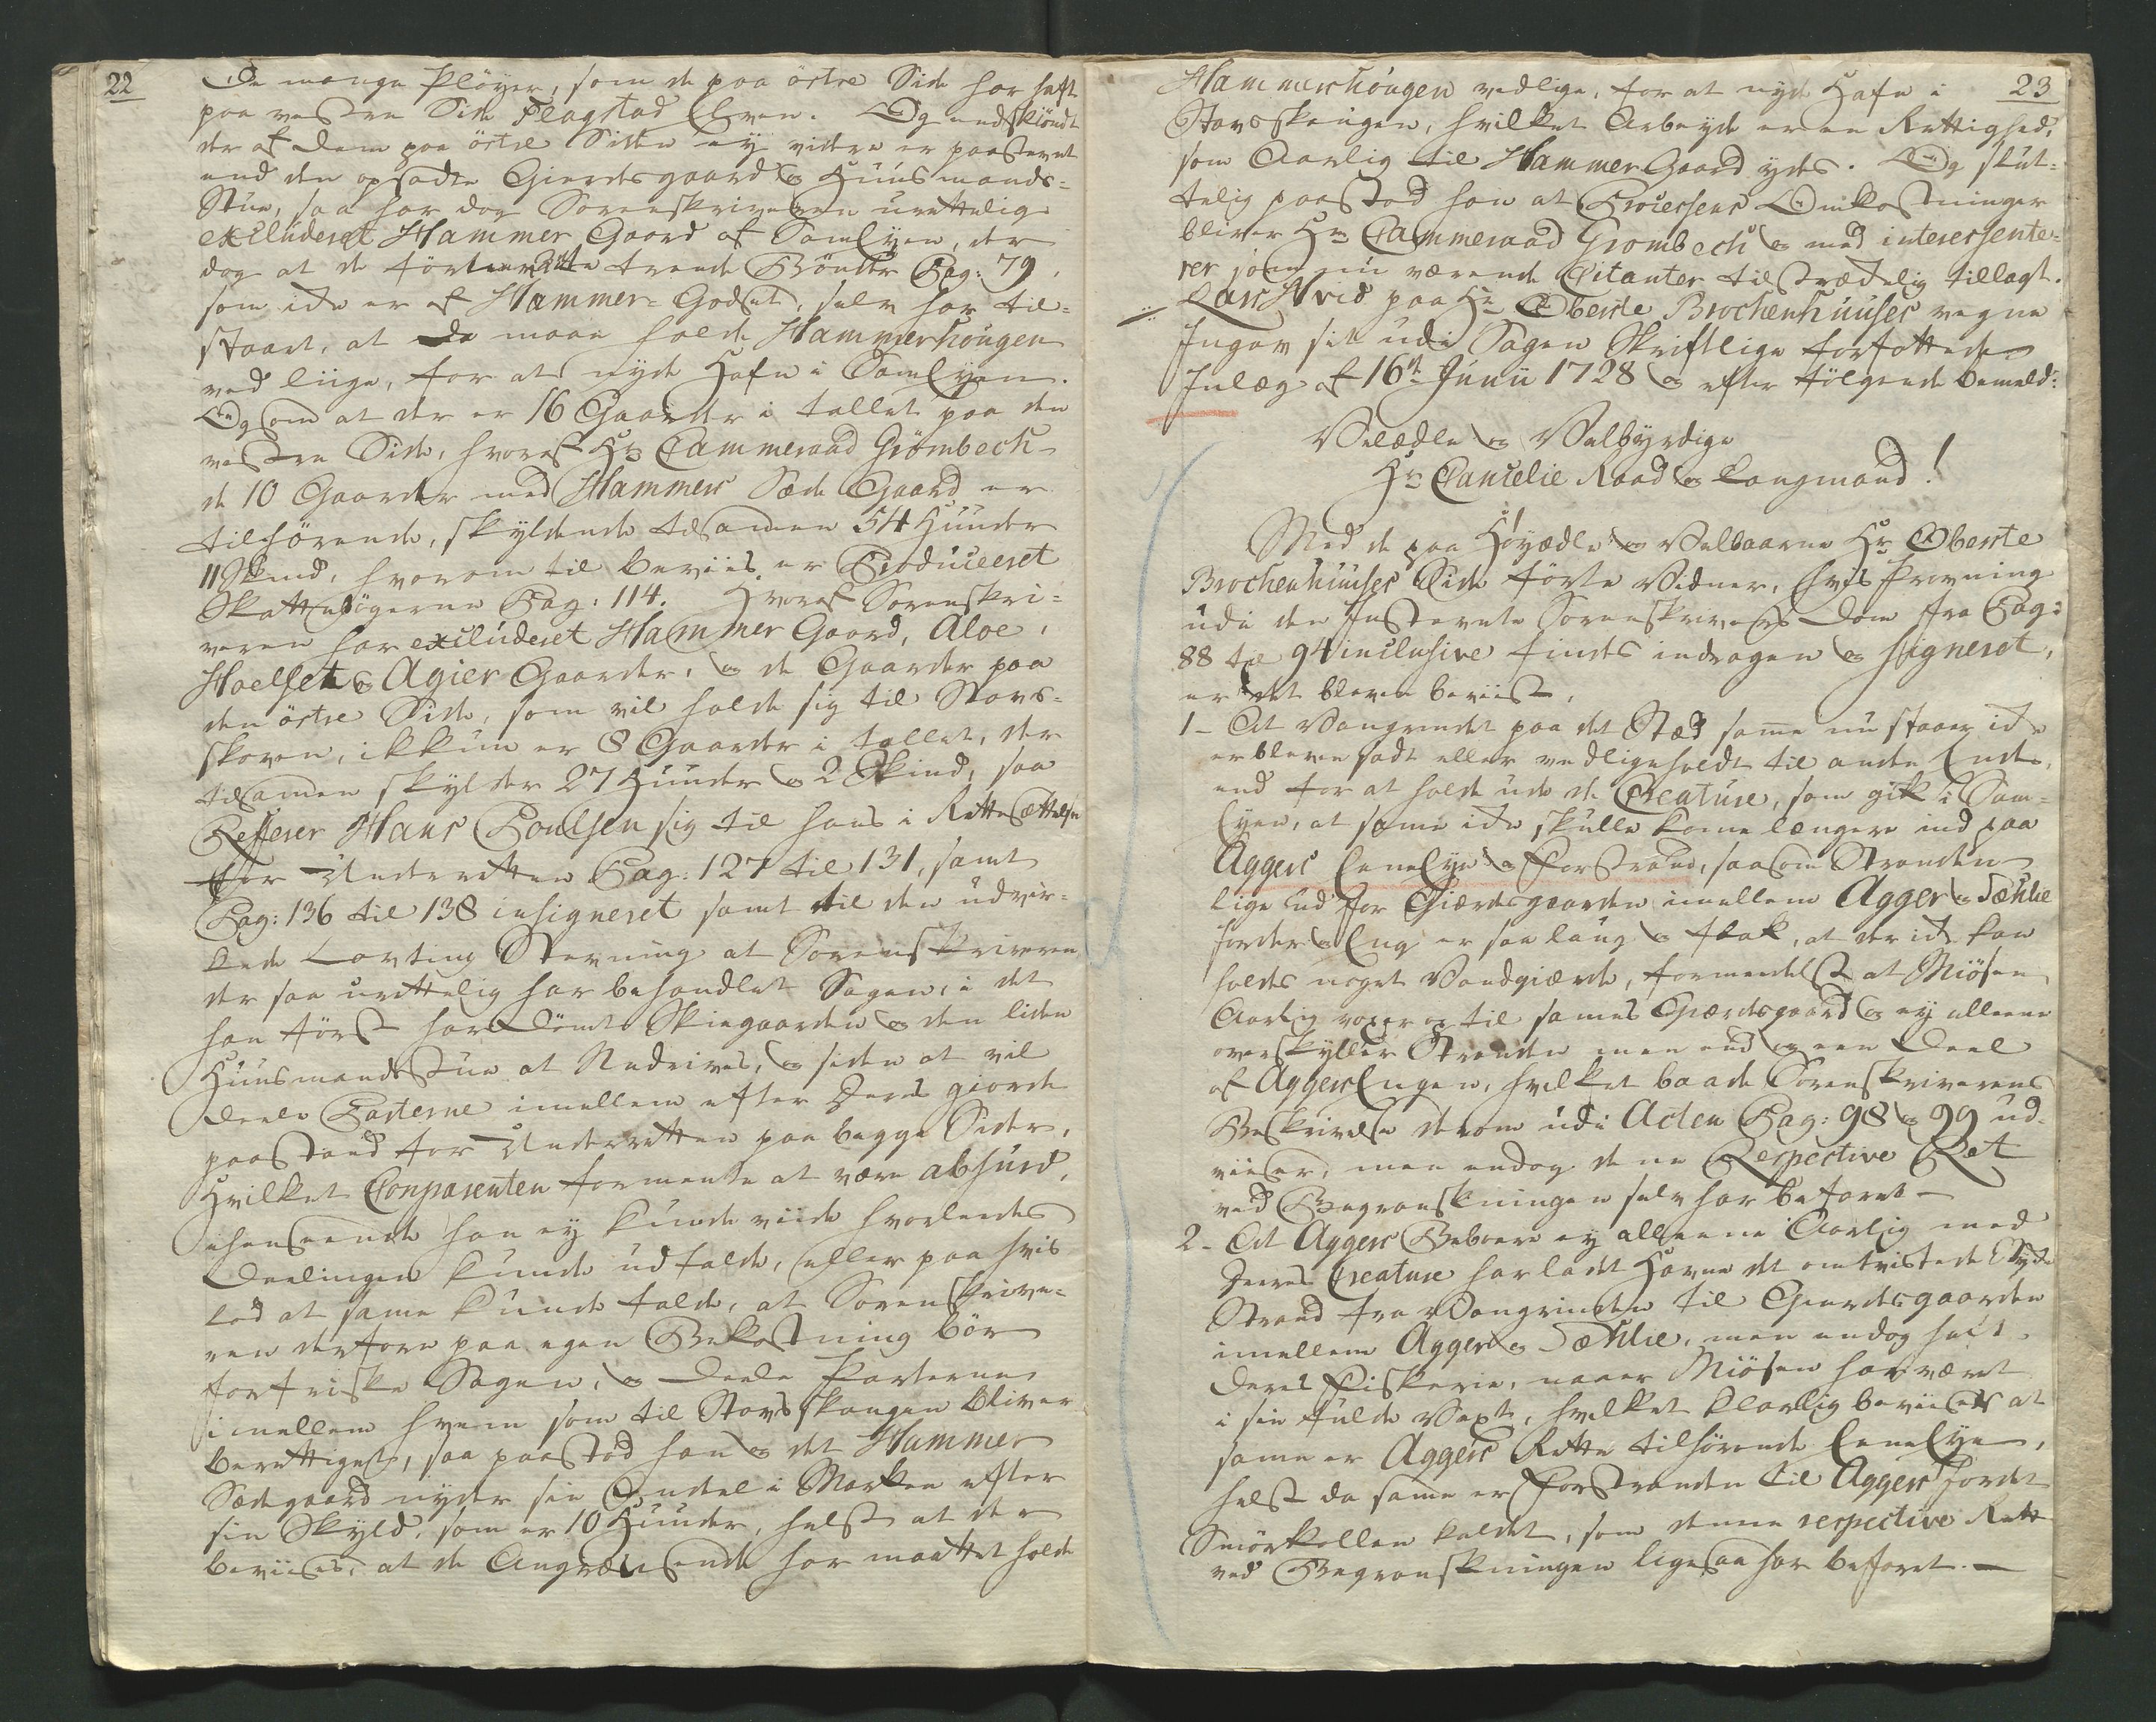 22
De mange Pløyer, som de paa østre Side har haft
paa vestre Side Flagstad Elven. Og endskiøndt
der af dem paa östre Siden ey videre er paastevnt
end den opsadte Gierdesgaard og Huusmands-
Stue, saa har dog Sorenskriveren urettelig
excluderet Hammer Gaard af Samlyen, der
dog at de førte trende Bønder Pag: 79.
som icke er af Hammer-Godset, selv har til-
staaet, at de maae holde Hammerhougen
ved liige, for at nyde Hafn i Samlyen.
Og som at der er 16 Gaarder i tallet paa den
vestre Side, hvoraf Hr Cammeraad Grombech
de 10 Gaarder med Hammers Sæde Gaard er
tilhørende, skyldende tilsamen 54 Huuder
11 Skind, hvorom til beviis er Produceeret
Skattebøgerne Pag: 114. Hvoraf Sorenskri-
veren har excluderet Hammer Gaard, Aloe,
Hoelset og Agier Gaarder, og de Gaarder paa
den østre Side, som vil holde sig til Stavs-
skoven, ikkun er 8 Gaarder i tallet, der
tilsamen skylder 27 Huuder og 2 Skind, saa
Refferer Hans Poulsen sig til hans i Rettesættelse
for Underretten Pag: 127 til 131, samt
Pag: 136 til 138 insigneret samt til den udvir-
kede Lavting Stevning at Sorenskriveren
der saa urettelig har behandlet Sagen, i det
han først har dömt Skiegaarden og den liden
Huusmands Stue at Nedrives, og siden at vil
deele Parterne imellem efter deres giorde
paastand for Underretten paa begge Sider,
Hvilket Comparenten formente at være absurd,
ihenseende han ey kunde viide hvorledes
Deelingen kunde udfalde, eller paa hvis
lod at same kunde falde, at Sorenskrive-
ren derfore paa egen Bekostning bör
forfriske Sagen, og deele Parterne
imellem hvem som til Stavsskougen bliver
berettiget, saa paastod han og det Hammer
Sædegaard nyder sin Andel i Marken efter
sin Skyld, som er 10 Huuder, helst at der
beviises, at de Angrændsende har maattet holde
23
Hammerhougen vedlige, for at nyde Hafn i
Stavsskougen, hvilket Arbeyde er en Rettighed,
som Aarlig til Hammer Gaard ydes. Og slut-
telig paastod han at Processens Omkostninger
bliver Hr Cammeraad Grombech og med interessente-
rer som nu værende Citanter tilstrædelig tillagt.
Lars Hvid paa Hr Oberste Brochenhuuses vegne
Ingav sit udi Sagen Skriftlige forfattede
Inlæg af 16de Junii 1728 og efter følgende bemeld:
Velædle og Velbyrdige
Hr Cancelie Raad og Laugmand!
Med de paa Høyædle og Velbaarne Hr Oberste
Brochenhuuses Side førte Vidner, hvis Provning
udi den Instevnte Sorenskrivers Dom fra Pag:
88 til 94 inclusive findes indragen og signeret,
er det bleven beviist.
1- At Vangrindet paa det Stæd same nu staar icke
er bleven sadt eller vedligeholdt til anden Ende,
end for at holde ude de Creature, som gik i Sam-
Eyen, at same icke skulle kome længere ind paa
Aggers EeneEye og Forstrand, saasom Stranden
lige ud for Giærdesgaarden imellem Agger og Sæhlie
Jorder og Eng er saa laug og flak, at der icke kan
holdes noget Vandgiærde, formedelst at Miøsen
Aarlig voxer op til sames Gierdesgaard og ey alleene
overskyller Stranden men end og een Deel
af Aggers Engen, hvilket baade Sorenskriverens
Beskrivelse derom udi Acten Pag: 98 og 99 ud-
viiser, men endog denne Respective Ret
ved Begranskningen selv har befaret —
2- At Aggers Beboere ey alleene Aarlig med
deres Creature har ladet Havne det omtvistede Stycke
Strand fra Vangrinden til Gierdesgaarden
imellem Agger og Sæhlie, men endog havt
deres Fiskerie, naar Miösen har været
i sin fulde Vext, hvilket klarlig beviiser at
same er Aggers Rette tilhørende EeneEye,
helst da same er Forstranden til Aggers Jordet
Smörkollen kaldet, som denne respective Rett
ved Begranskningen ligesaa har befaret. —